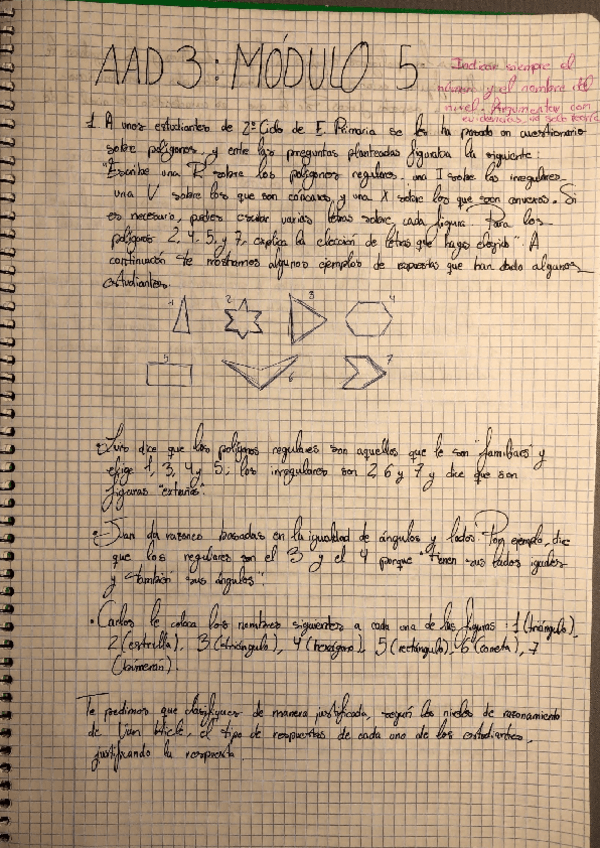 AAD 3: MÓDULO 5
Indicar siempre el
número y el nombre del
nivel. Argumentar con
evidencias, no solo teoría
1. A unos estudiantes de 2º Ciclo de E. Primaria se les ha pasado un cuestionario
sobre polígonos, y ente las preguntas planteadas figuraba la siguiente
"Escribe una R sobre los polígonos regulares, una I sobre los irregulares
una V sobre los que son cóncavos, y una X sobre los que son convexos. Si
es necesario, puedes escribir varias letras sobre cada figura. Para los
polígonos 2, 4, 5, y 7, explica la elección de letras que hayas elegido". A
continuación te mostramos algunos ejemplos de respuestas que han dado algunos
estudiantes.
1 2 3 4
5 6 7
• Luis dice que los polígonos regulares son aquellos que le son "familiares" y
elige 1, 3, 4 y 5; los irregulares son 2, 6 y 7 y dice que son
figuras "extrañas".
• Dan da razones basadas en la igualdad de ángulos y lados. Por ejemplo, dice
que los regulares son el 3 y el 4 porque "tienen sus lados iguales
y también sus ángulos".
• Carlos le coloca los nombres siguientes a cada una de las figuras: 1 (triángulo),
2 (estrella), 3 (triángulo), 4 (hexágono), 5 (rectángulo), 6 (cometa), 7
(búmeran).
Te pedimos que clasifiques de manera justificada, según los niveles de razonamiento
de Van Hiele, el tipo de respuestas de cada uno de los estudiantes,
justificando la respuesta.